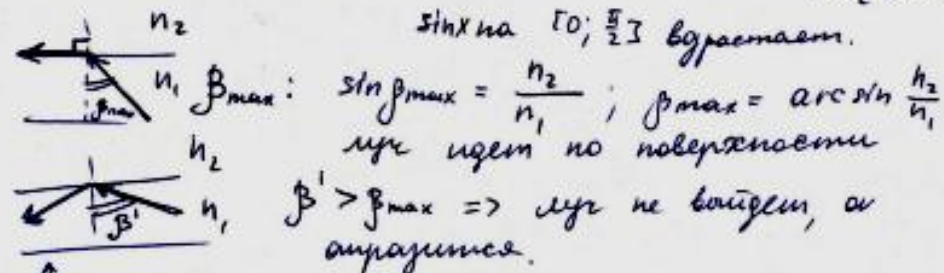 n₂ sinx на [0; π/2] вдрастает.
n₁ βmax: sinβmax = n₂/n₁ ; βmax = arcsin n₂/n₁
βmax
луч идет по поверхности
n₂
β' n₁ β' > βmax => луч не выйдет, а
отразится.